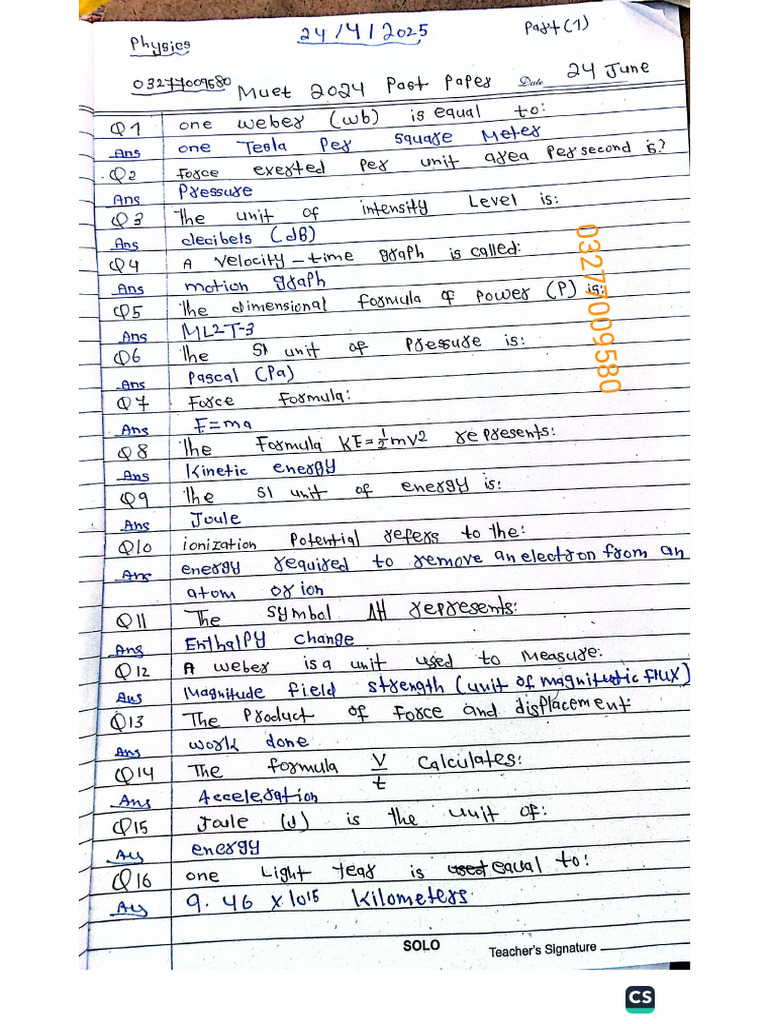 Physics
24/4/2025
Part(1)
03277009580
Muet 2024 Past Paper
Date 24 June
Q1 one weber (wb) is equal to:
Ans one Tesla Per square Meter
Q2 force exerted per unit area per second is?
Ans Pressure
Q3 The unit of intensity Level is:
Ans decibels (dB)
Q4 A velocity-time graph is called:
Ans motion graph
Q5 The dimensional formula of Power (P) is:
Ans ML2T-3
Q6 The SI unit of Pressure is:
Ans Pascal (Pa)
Q7 Force Formula:
Ans F=ma
Q8 The Formula KE=½mv2 represents:
Ans Kinetic energy
Q9 The SI unit of energy is:
Ans Joule
Q10 ionization Potential refers to the:
Ans energy required to remove an electron from an
atom or ion
Q11 The symbol ΔH represents:
Ans Enthalpy change
Q12 A weber is a unit used to Measure:
Ans Magnitude field strength (unit of flux)
Q13 The Product of Force and displacement
Ans work done
Q14 The formula V/t Calculates:
Ans Acceleration
Q15 Joule (J) is the unit of:
Ans energy
Q16 one Light Year is used equal to:
Ans 9.46 x10¹⁵ kilometers.
03277009580
SOLO
Teacher's Signature
CS